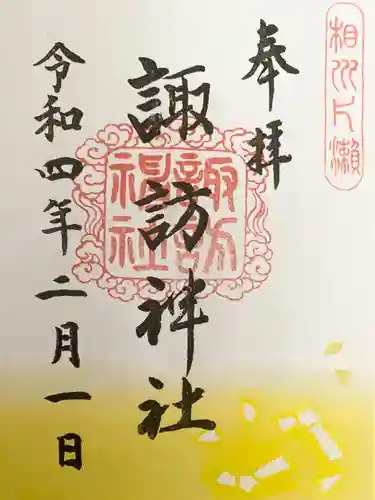 相州片瀬
奉拝
諏訪神社
諏訪
神社
令和四年二月一日